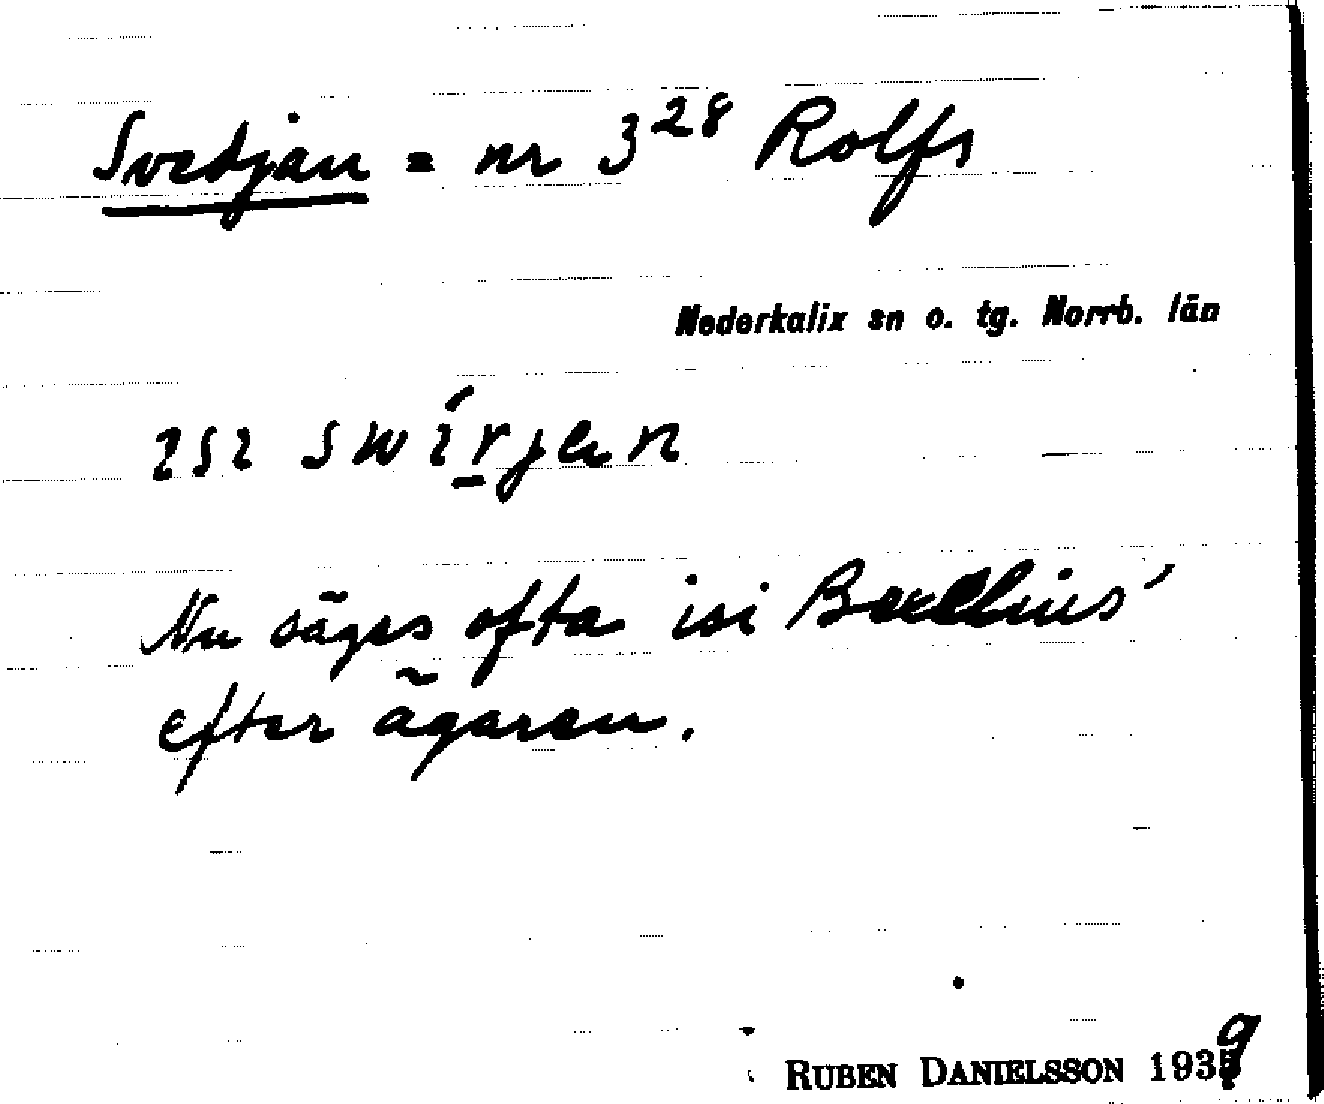 Svedjan = nr 3²⁸ Rolfs
Nederkalix sn o. tg. Norrb. län
ısı swı́rjan
Nu säges ofta isi
efter ägaren.
RUBEN DANIELSSON 1939